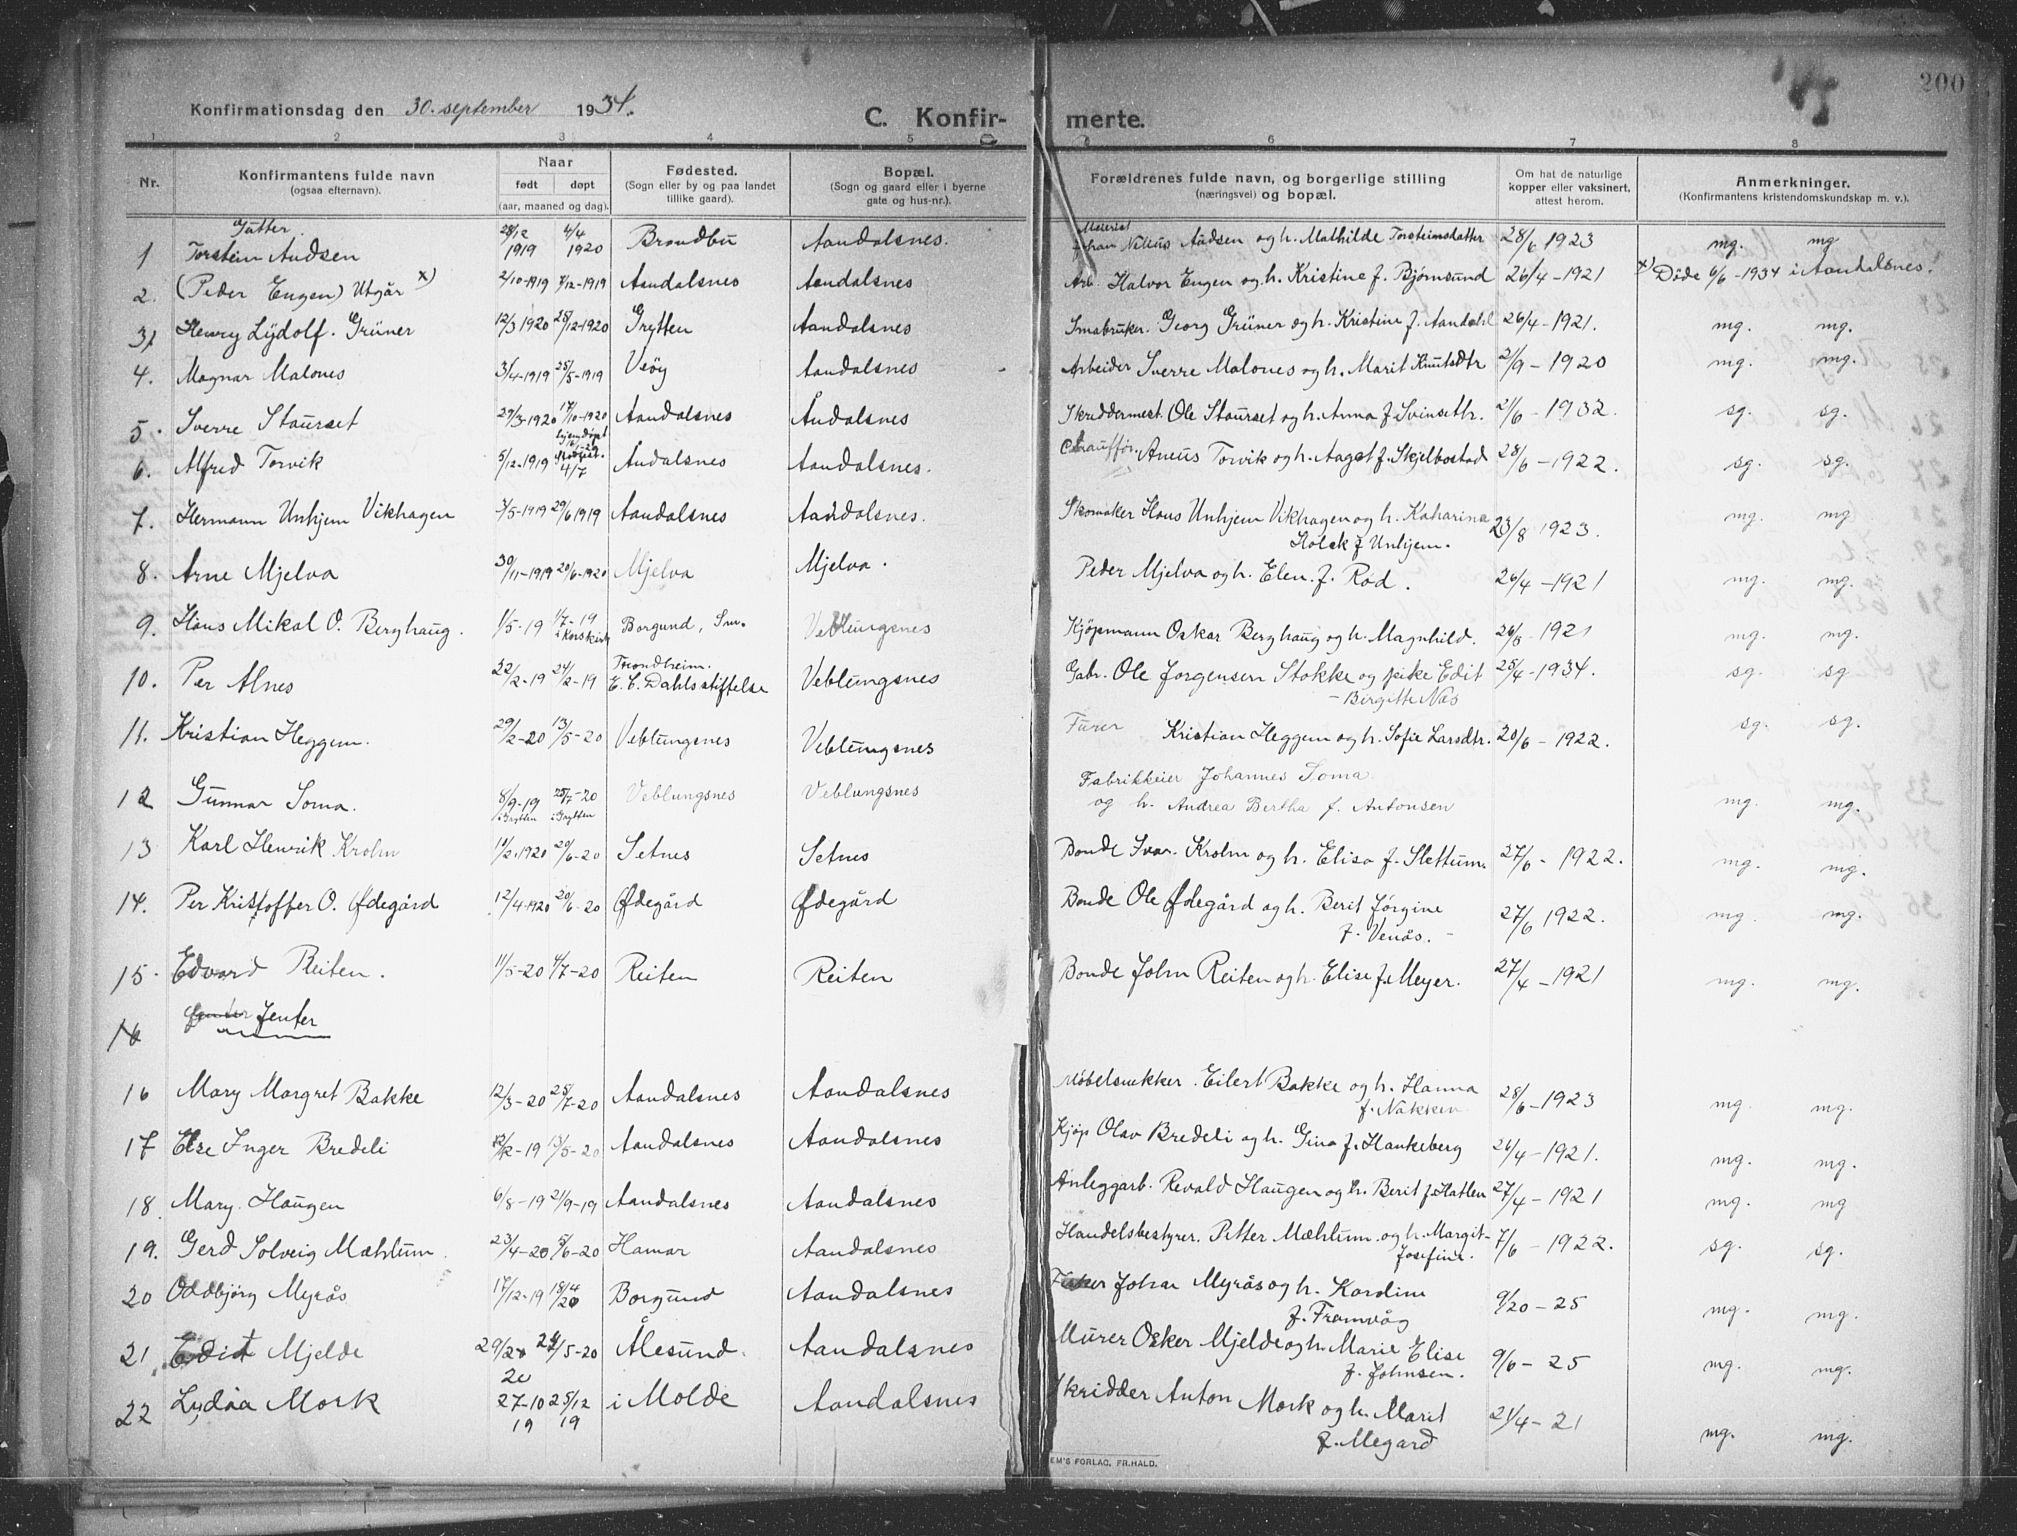 200
Konfirmationsdag den 30. september 1934.
C. Konfir- merte.
1 2 3 4 5 6 7 8
Nr. Konfirmantens fulde navn (ogsaa efternavn). Naar født døpt (aar, maaned og dag). Fødested. (Sogn eller by og paa landet tillike gaard). Bopæl. (Sogn og gaard eller i byerne gate og hus-nr.). Forældrenes fulde navn, og borgerlige stilling (næringsvei) og bopæl. Om hat de naturlige kopper eller vaksinert, attest herom. Anmerkninger. (Konfirmantens kristendomskundskap m. v.).
Gutter
1 Torstein Audsen 28/12 1919 4/4 1920 Brandbu Aandalsnes. Meierist Johan Nilius Audsen og h. Mathilde Torsteinsdatter 28/6 1923 mg. mg
2. (Peder Engen) Utgår x) 2/10-1919 7/12-1919 Aandalsnes Aandalsnes Arb. Halvor Engen og h. Kristine f. Bjørnsund 26/4-1921 x) Døde 6/6-1934 i Aandalsnes.
3) Henry Lydolf. Grüner 12/3 1920 25/12-1920 Grytten Aandalsnes Smabruker. Georg Grüner og h. Kristine f. Aandahl 26/4-1921. mg. mg.
4. Magnar Malones 3/4-1919 25/5-1919 Veøy Aandalsnes Arbeider Sverre Malones og h. Marit Knutsdtr 2/9-1920 mg. mg.
5. Sverre Staurset 29/3-1920 17/10-1920 Aandalsnes Åndalsnes Skreddermest. Ole Staurset og h. Anna f. Svinseth. 2/6-1932. sg. sg.
6. Alfred Torvik 5/12-1919 hjemdøpt 4/7 Åndalsnes Aandalsnes. Chauffør Aneus Torvik og h. Aagot f. Skjelbostad 28/6-1922. sg. sg.
7. Hermann Unhjem Vikhagen 3/5-1919 29/6 1919 Aandalsnes Aandalsnes. Skomaker Hans Unhjem Vikhagen og h. Katharina
Holck f Unhjem. 23/8 1923. mg. mg
8. Arne Mjelva 30/11-1919 20/6-1920 Mjelva Mjelva. Peder Mjelva og h. Elen. f. Rød. 26/4-1921 mg. mg.
9. Hans Mikal O. Berghaug. 1/5-19 1/7-19 i Korskirk Borgund, Sm. Veblungsnes Kjøpmann Oskar Berghaug og h. Magnhild. 26/8-1921 mg. mg.
10. Per Alnes 22/2-19 24/2-19 Trondheim. E. C. Dahls stiftelse Veblungsnes Gabr. Ole Jørgensen Stokke og pike Edit
- Birgitte Næs 25/4-1934. sg. sg
11. Kristian Heggem. 29/2-20 13/5-20 Veblungsnes Veblungsnes Furer Kristian Heggem og h. Sofie Larsdtr. 20/6-1922. sg. sg.
12 Gunnar Soma. 8/9-19 i Grytten 25/7-20 i Grytten Veblungsnes Veblungsnes Fabrikkeier Johannes Soma
og h. Andrea Bertha f. Antonsen mg. mg.
13 Karl Henrik Krohn 10/2-1920 20/6-20 Setnes Setnes Bonde Ivar Krohn og h. Elisa f. Slettum. 27/6-1922. mg. mg.
14. Per Kristoffer O. Ødegård 12/4-1920 20/6-20 Ødegård Ødegård Bonde Ole Ødegård og h. Berit Jørgine
f. Venås. 27/6 1922. mg. mg.
15. Edvard Reiten. 11/5-20 4/7-20 Reiten Reiten Bonde John Reiten og h. Elise f. Meyer. 27/4-1921 mg. mg.
16 Jenter
16 Mary Margret Bakke 12/3-20 25/7-20 Aandalsnes Aandalsnes Møbelsnekker. Eilert Bakke og h. Hanna
f. Nakken 28/6-1923 mg. mg.
17 Else Inger Bredeli 12/12-19 13/5-20 Aandalsnes Aandalsnes Kjøp Olav Bredeli og h. Gina f. Hankeberg 26/4-1921. mg. mg.
18. Mary. Haugen 6/8-19 21/9-19 Aandalsnes Aandalsnes Anleggarb. Revald Haugen og h. Berit f. Hatlen 27/4-1921 mg. mg
19. Gerd Solveig Mæhlum. 23/4-20 5/6-20 Hamar Aandalsnes Handelsbestyrer. Petter Mæhlum. og h. Margit-
Josefine. 7/6-1922. sg. sg.
20 Oddbjørg Myrås 17/12-19 18/4 20 Borgund Aandalsnes Fisker Johan Myrås og h. Kardine
f. Framvåg 9/20-25 mg. mg.
21 Edit Mjelde 29/2 20 24/5-20 Ålesund. Aandalsnes Murer Osker Mjelde og h. Marie Elise
f. Johnsen. 9/6-25 mg. mg.
22 Lydia Mork 27-10 19 25/12 19 i Molde Aandalsnes Skredder Anton Mork og h. Marit
f. Megard 21/4-21 mg. mg.
EM'S FORLAG, FR.HALD.